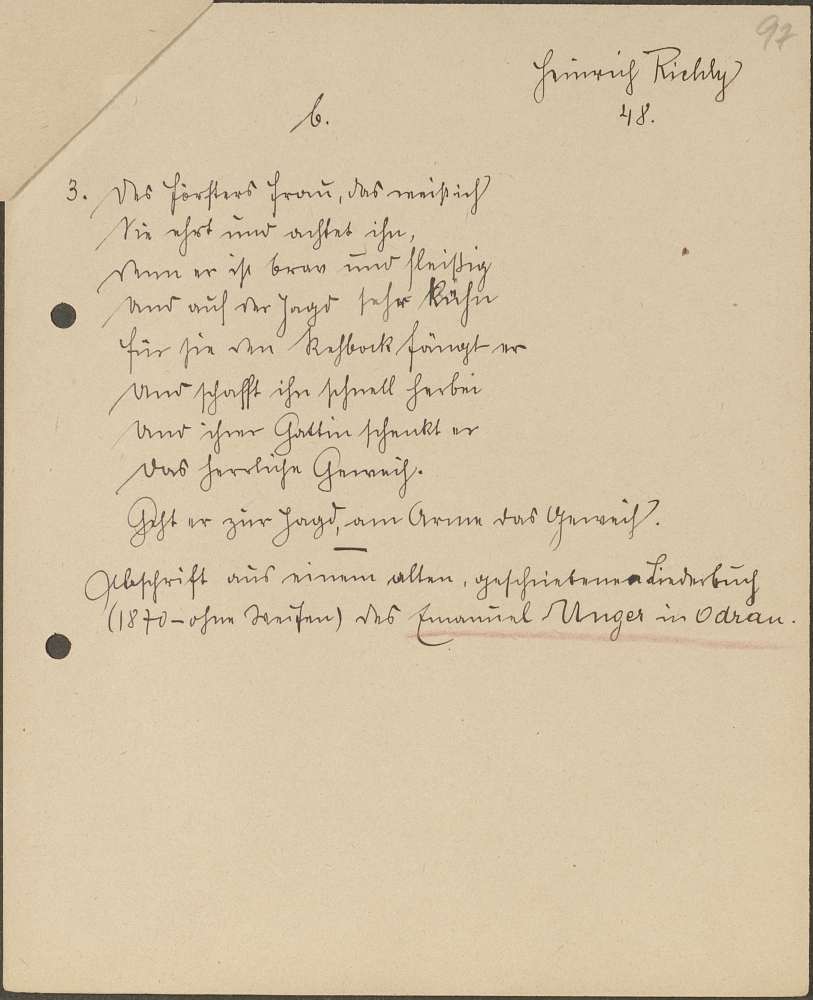 97
Heinrich Richly
48.
b.
3. Des Försters Frau, das weiß ich
Sie ehrt und achtet ihn,
Denn er ist brav und fleißig
Und auf der Jagd sehr kühn
Für sie den Rehbock fängt er
Und schafft ihn schnell herbei
Und ihrer Gattin schenkt er
Das herrliche Geweih.
Geht er zur Jagd, am Arme das Geweih.
Abschrift aus einem alten, geschriebenen Liederbuch
(1870 – ohne Weisen) des Emanuel Unger in Odrau.